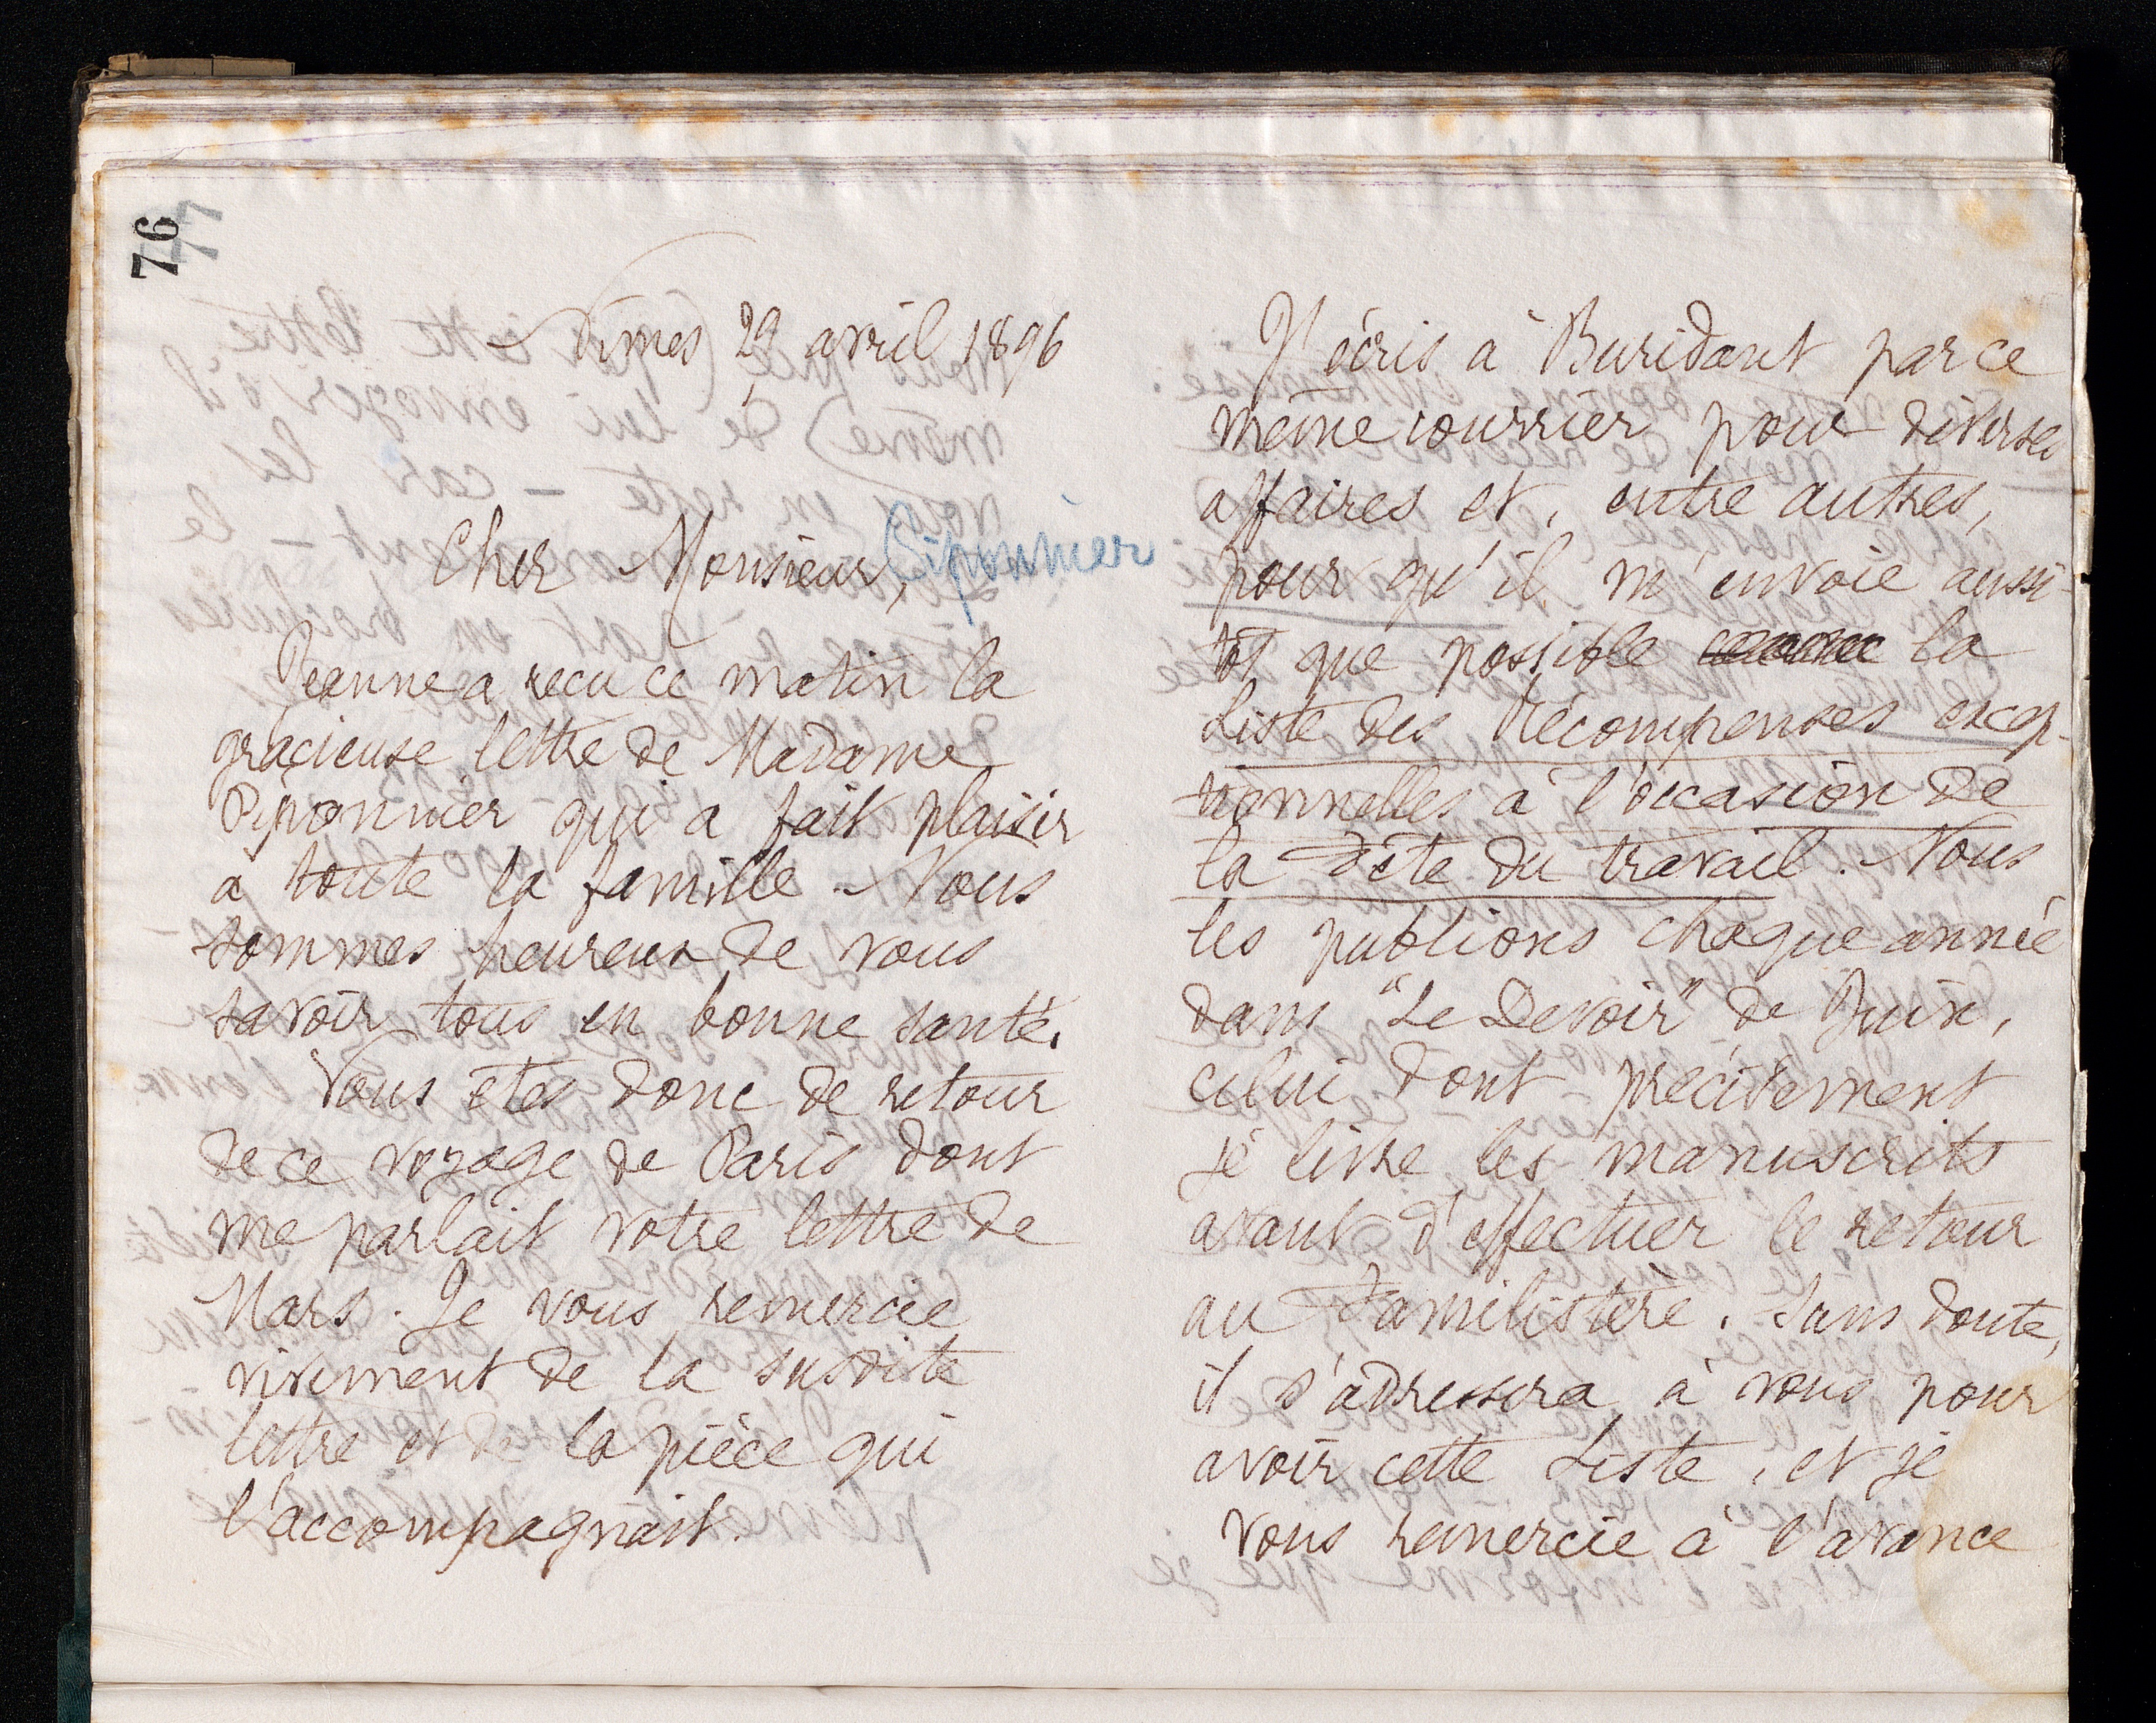 76
77
Nîmes 29 avril 1896
Cher Monsieur, Piponnier
Jeanne a reçu ce matin la
gracieuse lettre de Madame
Piponnier qui a fait plaisir
à toute la famille. Nous
sommes heureux de vous
savoir tous en bonne santé.
Vous êtes donc de retour
de ce voyage de Paris dont
me parlait votre lettre de
Mars. Je vous remercie
vivement de la susdite
lettre et de la pièce qui
l'accompagnait.
J'écris à Buridant par ce
même courrier pour diverses
affaires et, entre autres,
pour qu'il m'envoie aussi-
tôt que possible la
Liste des Récompenses excep-
tionnelles à l'occasion de
la Fête du travail. Nous
les publions chaque année
dans "Le Devoir" de Juin,
celui dont précisément
je livre les manuscrits
avant d'effectuer le retour
au Familistère. Sans doute,
il s'adressera à vous pour
avoir cette Liste, et je
vous remercie à l'avance